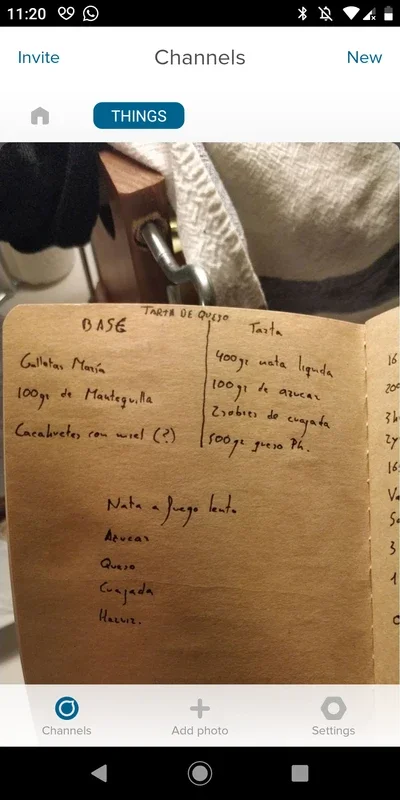 11:20
Invite
Channels
New
THINGS
TARTA DE QUESO
BASE
Galletas María
100gr de Mantequilla
Cacahuetes con miel (?)
Tarta
400gr nata liquida
100gr de azucar
2 sobres de cuajada
500gr queso Ph.
Nata a fuego lento
Azucar
Queso
Cuajada
Hervir.
16
200
3
2
16
Va
So
3
1
Channels
Add photo
Settings